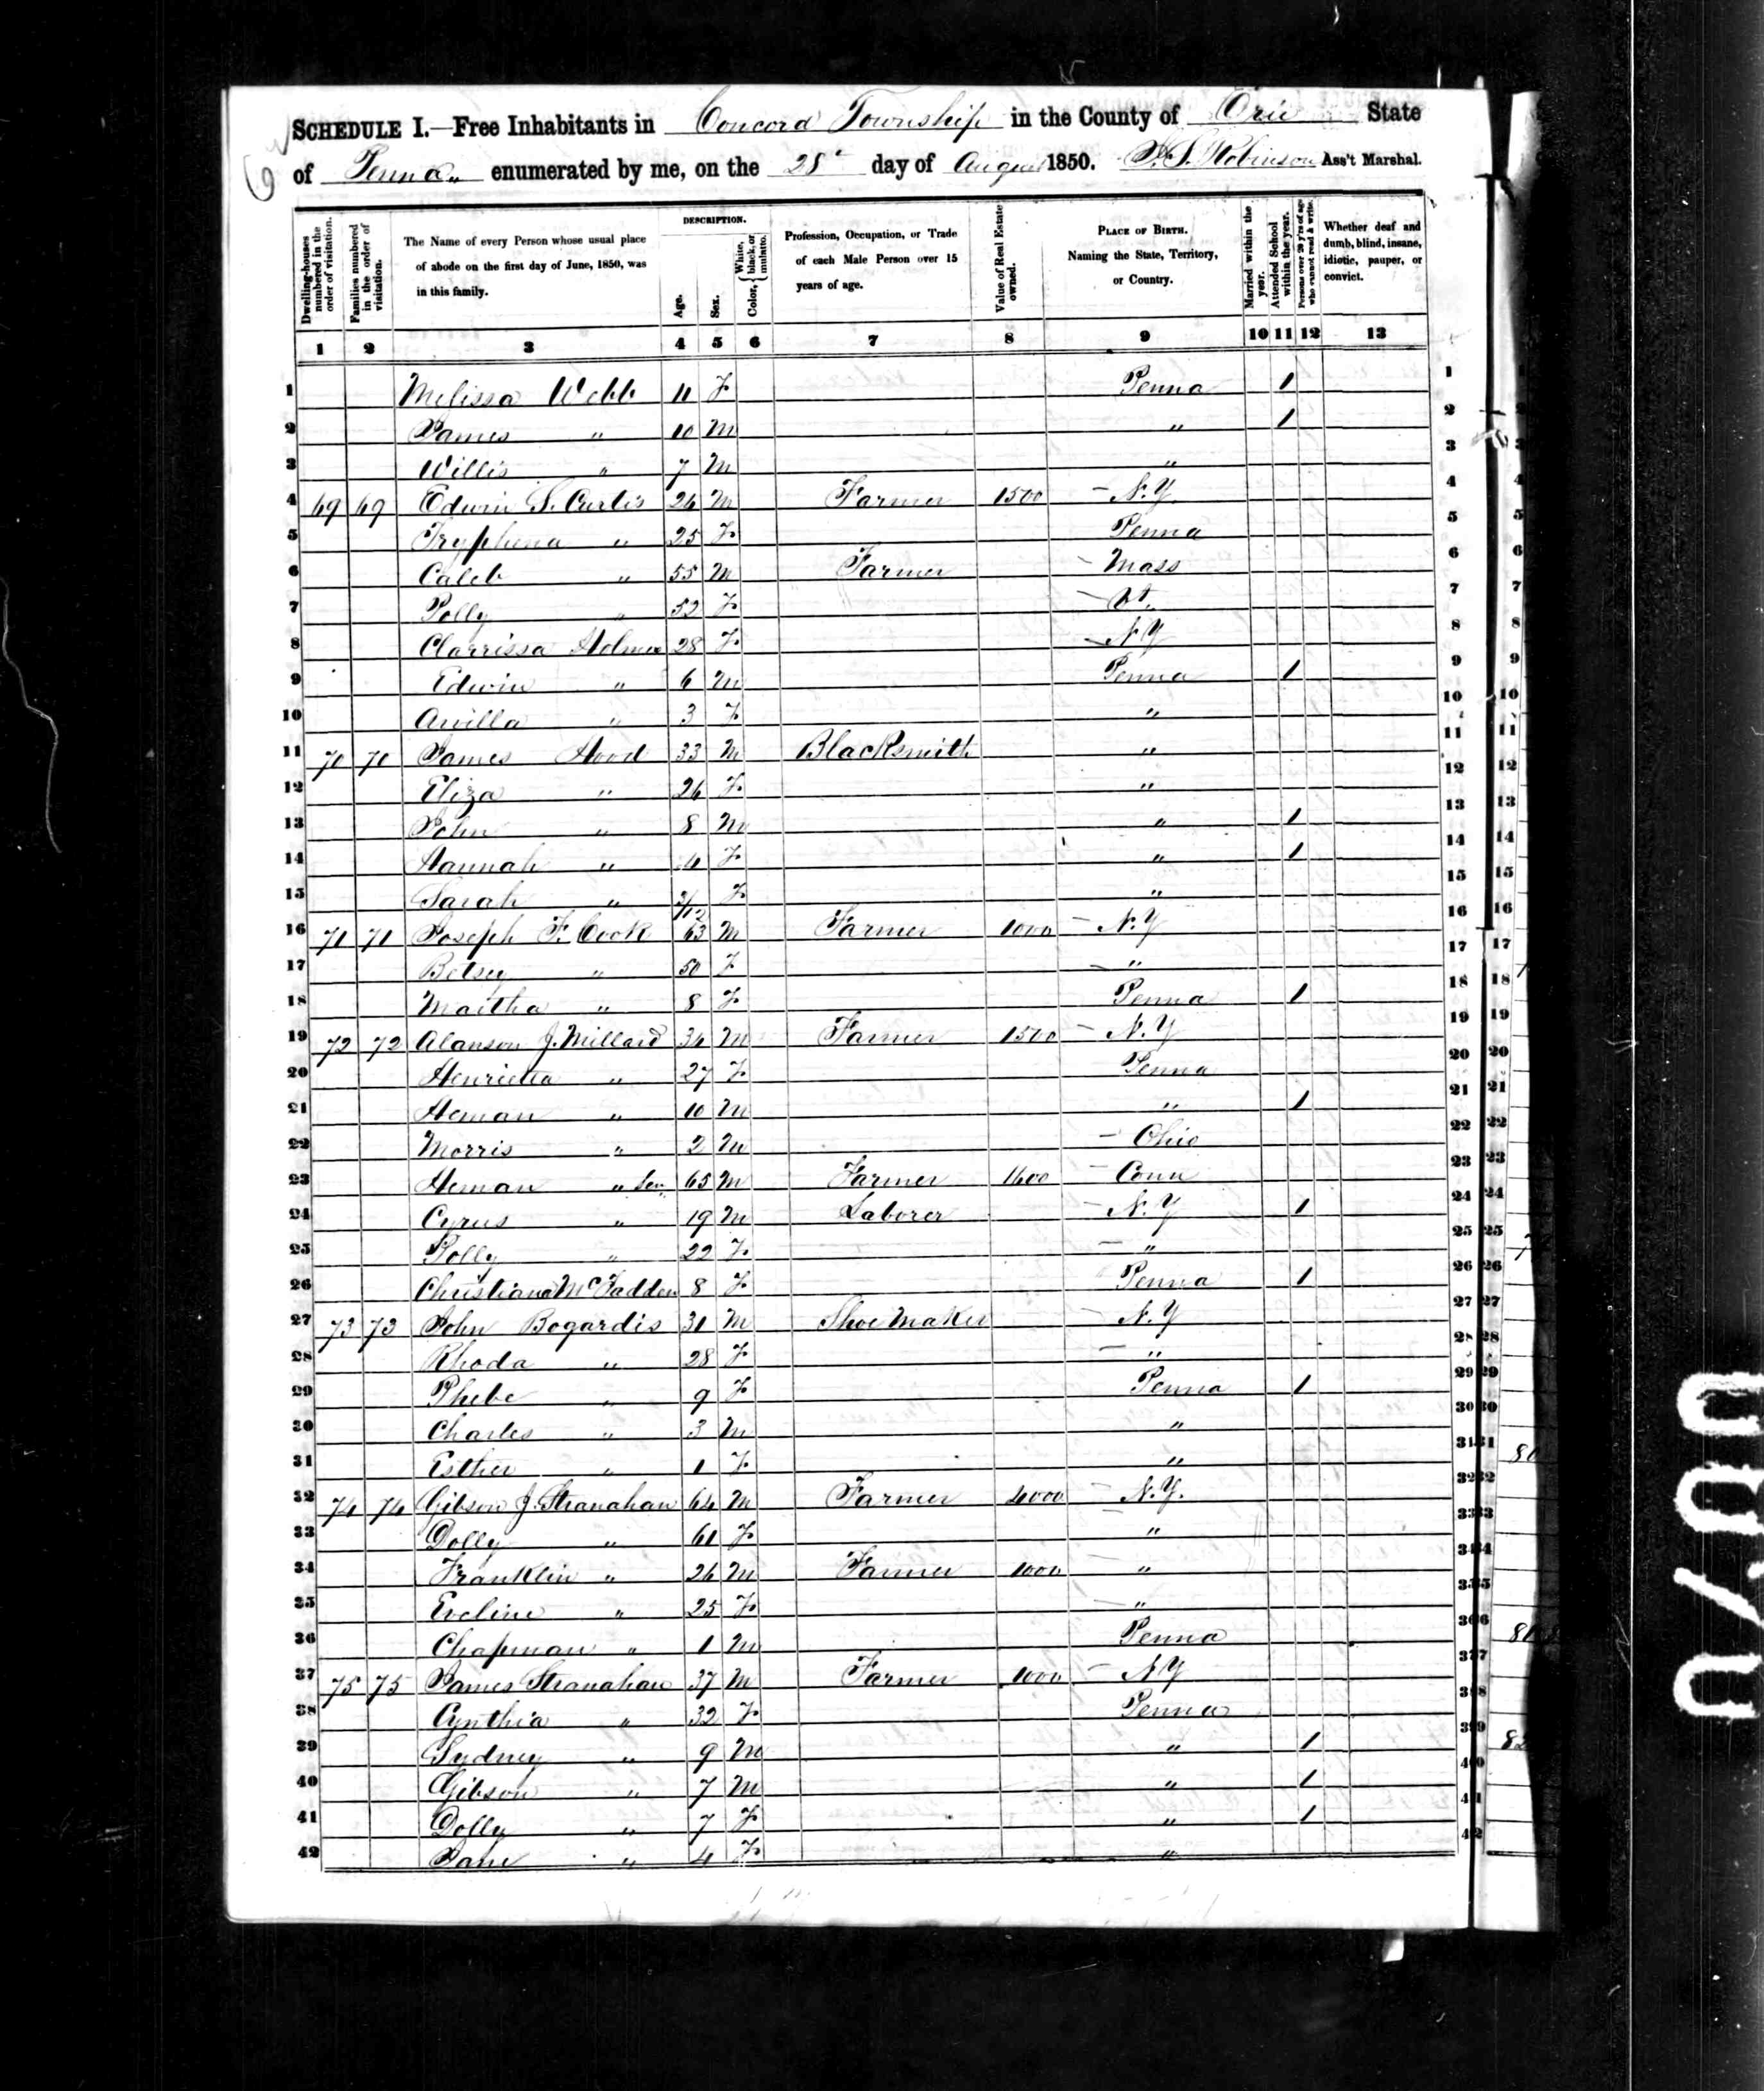 SCHEDULE I.—Free Inhabitants in Concord Township in the County of Erie State
of Penna. enumerated by me, on the 28" day of August 1850. Robinson Ass't Marshal.
Dwelling-houses numbered in the order of visitation.
Families numbered in the order of visitation.
The Name of every Person whose usual place of abode on the first day of June, 1850, was in this family.
DESCRIPTION.
Age.
Sex.
Color, { White, black, or mulatto.
Profession, Occupation, or Trade of each Male Person over 15 years of age.
Value of Real Estate owned.
PLACE OF BIRTH. Naming the State, Territory, or Country.
Married within the year.
Attended School within the year.
Persons over 20 y'rs of age who cannot read & write.
Whether deaf and dumb, blind, insane, idiotic, pauper, or convict.
1 2 3 4 5 6 7 8 9 10 11 12 13
1 Melissa Webb 11 F Penna 1 1
2 James " 10 M " 1 2
3 Willis " 7 M " 3
4 69 69 Edwin S. Curtis 26 M Farmer 1500 – N.Y. 4
5 Tryphena " 25 F Penna 5
6 Caleb " 55 M Farmer – Mass 6
7 Polly " 52 F – Vt. 7
8 Clarrissa 28 F – N.Y 8
9 Edwin " 6 M Penna 1 9
10 " 3 F " 10
11 70 70 James Hood 33 M Blacksmith " 11
12 Eliza " 26 F " 12
13 John " 8 M " 1 13
14 Hannah " 4 F " 1 14
15 Sarah " 3/12 F " 15
16 71 71 Joseph F. Cook 63 M Farmer 1000 – N.Y 16
17 Betsey " 50 F – " 17
18 Martha " 8 F Penna 1 18
19 72 72 Alanson J. Millard 34 M Farmer 1500 – N.Y 19
20 Henrietta " 27 F Penna 20
21 Heman " 10 M " 1 21
22 Morris " 2 M – Ohio 22
23 Heman " Sen. 65 M Farmer 1600 – Conn 23
24 Cyrus " 19 M Laborer – N.Y 1 24
25 Polly " 22 F – " 25
26 Christiana McFadden 8 F Penna 1 26
27 73 73 John Bogardis 31 M Shoe Maker – N.Y 27
28 Rhoda " 28 F – " 28
29 Phebe " 9 F Penna 1 29
30 Charles " 3 M " 30
31 Esther " 1 F " 31
32 74 74 Gibson J. Stranahan 64 M Farmer 4000 – N.Y. 32
33 Dolly " 61 F – " 33
34 Franklin " 26 M Farmer 1000 – " 34
35 Eveline " 25 F – " 35
36 Chapman " 1 M Penna 36
37 75 75 James Stranahan 37 M Farmer 1000 – N.Y 37
38 Cynthia " 32 F Penna 38
39 Sydney " 9 M " 1 39
40 Gibson " 7 M " 1 40
41 Dolly " 7 F " 1 41
42 Jane " 4 F " 42